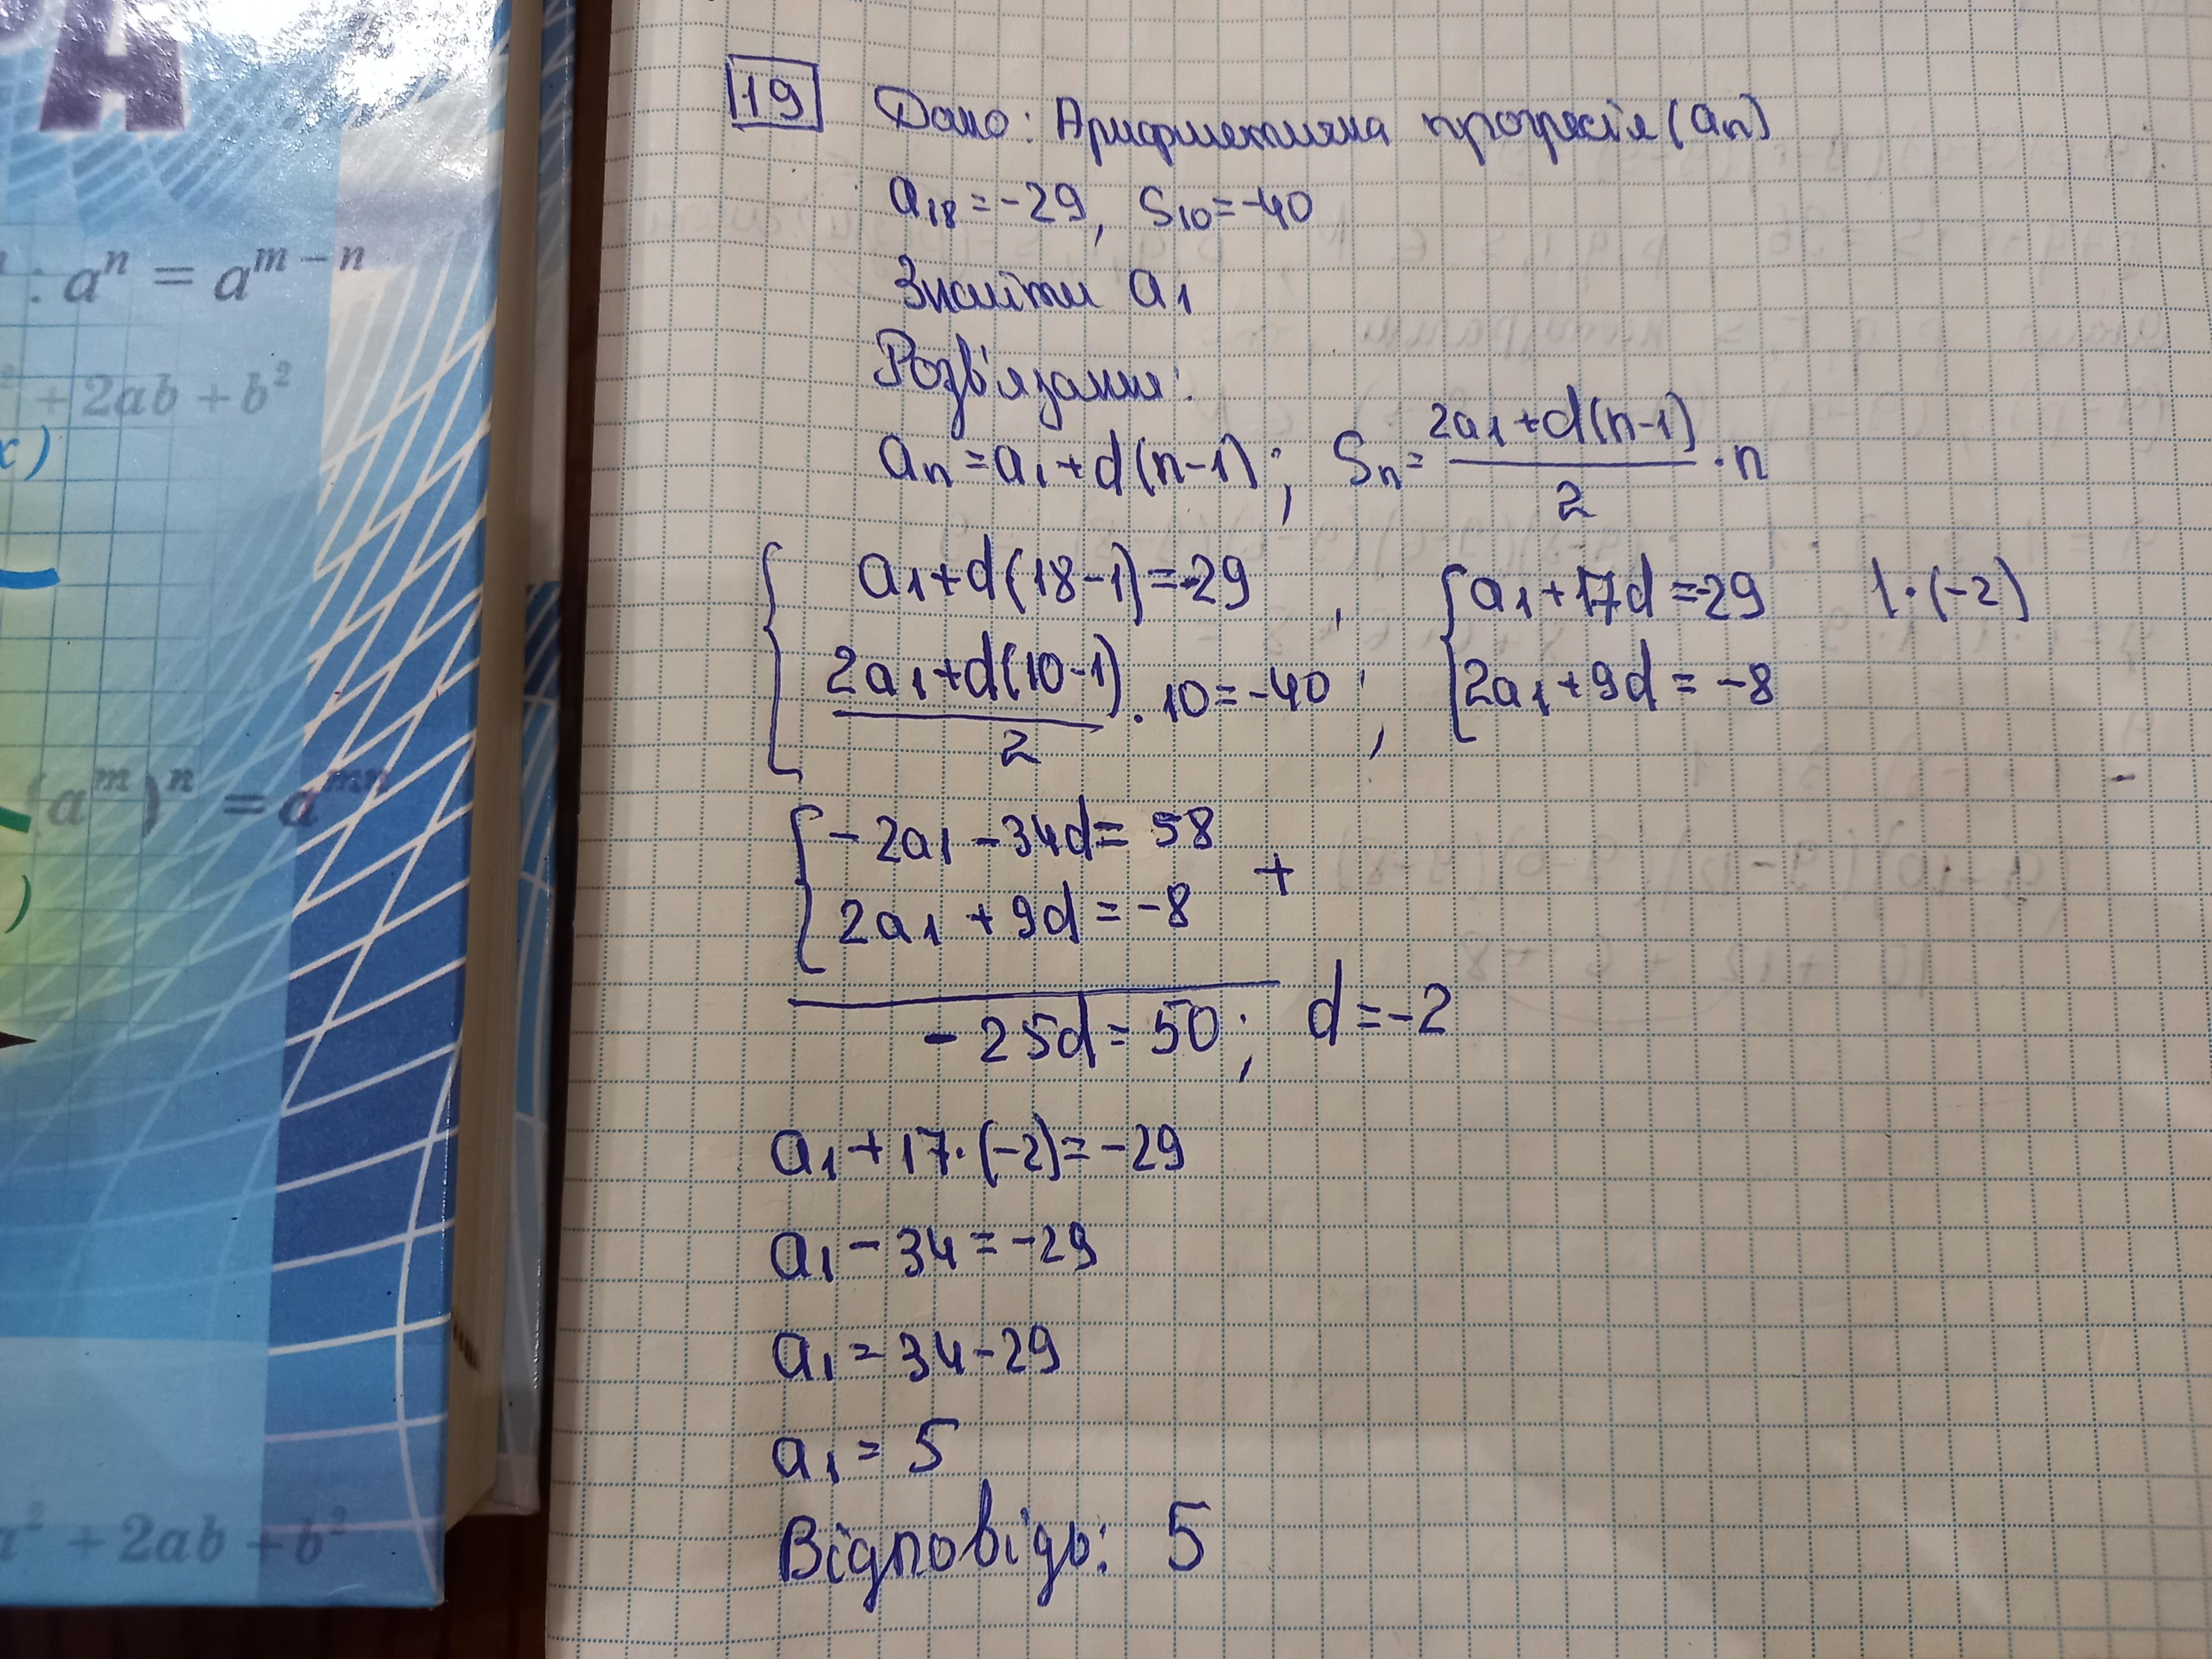 А
: aⁿ = aᵐ⁻ⁿ
² + 2ab + b²
x)
(aᵐ)ⁿ = aᵐⁿ
)
a² + 2ab + b²
19 Дано: Арифметична прогресія (an)
a18 = -29, S10 = -40
Знайти a1
Розв'язання:
an = a1 + d(n-1); Sn = (2a1 + d(n-1))/2 · n
{ a1 + d(18-1) = -29, { a1 + 17d = -29 | · (-2)
(2a1 + d(10-1))/2 · 10 = -40; 2a1 + 9d = -8
{ -2a1 - 34d = 58 +
2a1 + 9d = -8
-25d = 50; d = -2
a1 + 17 · (-2) = -29
a1 - 34 = -29
a1 = 34 - 29
a1 = 5
Відповідь: 5